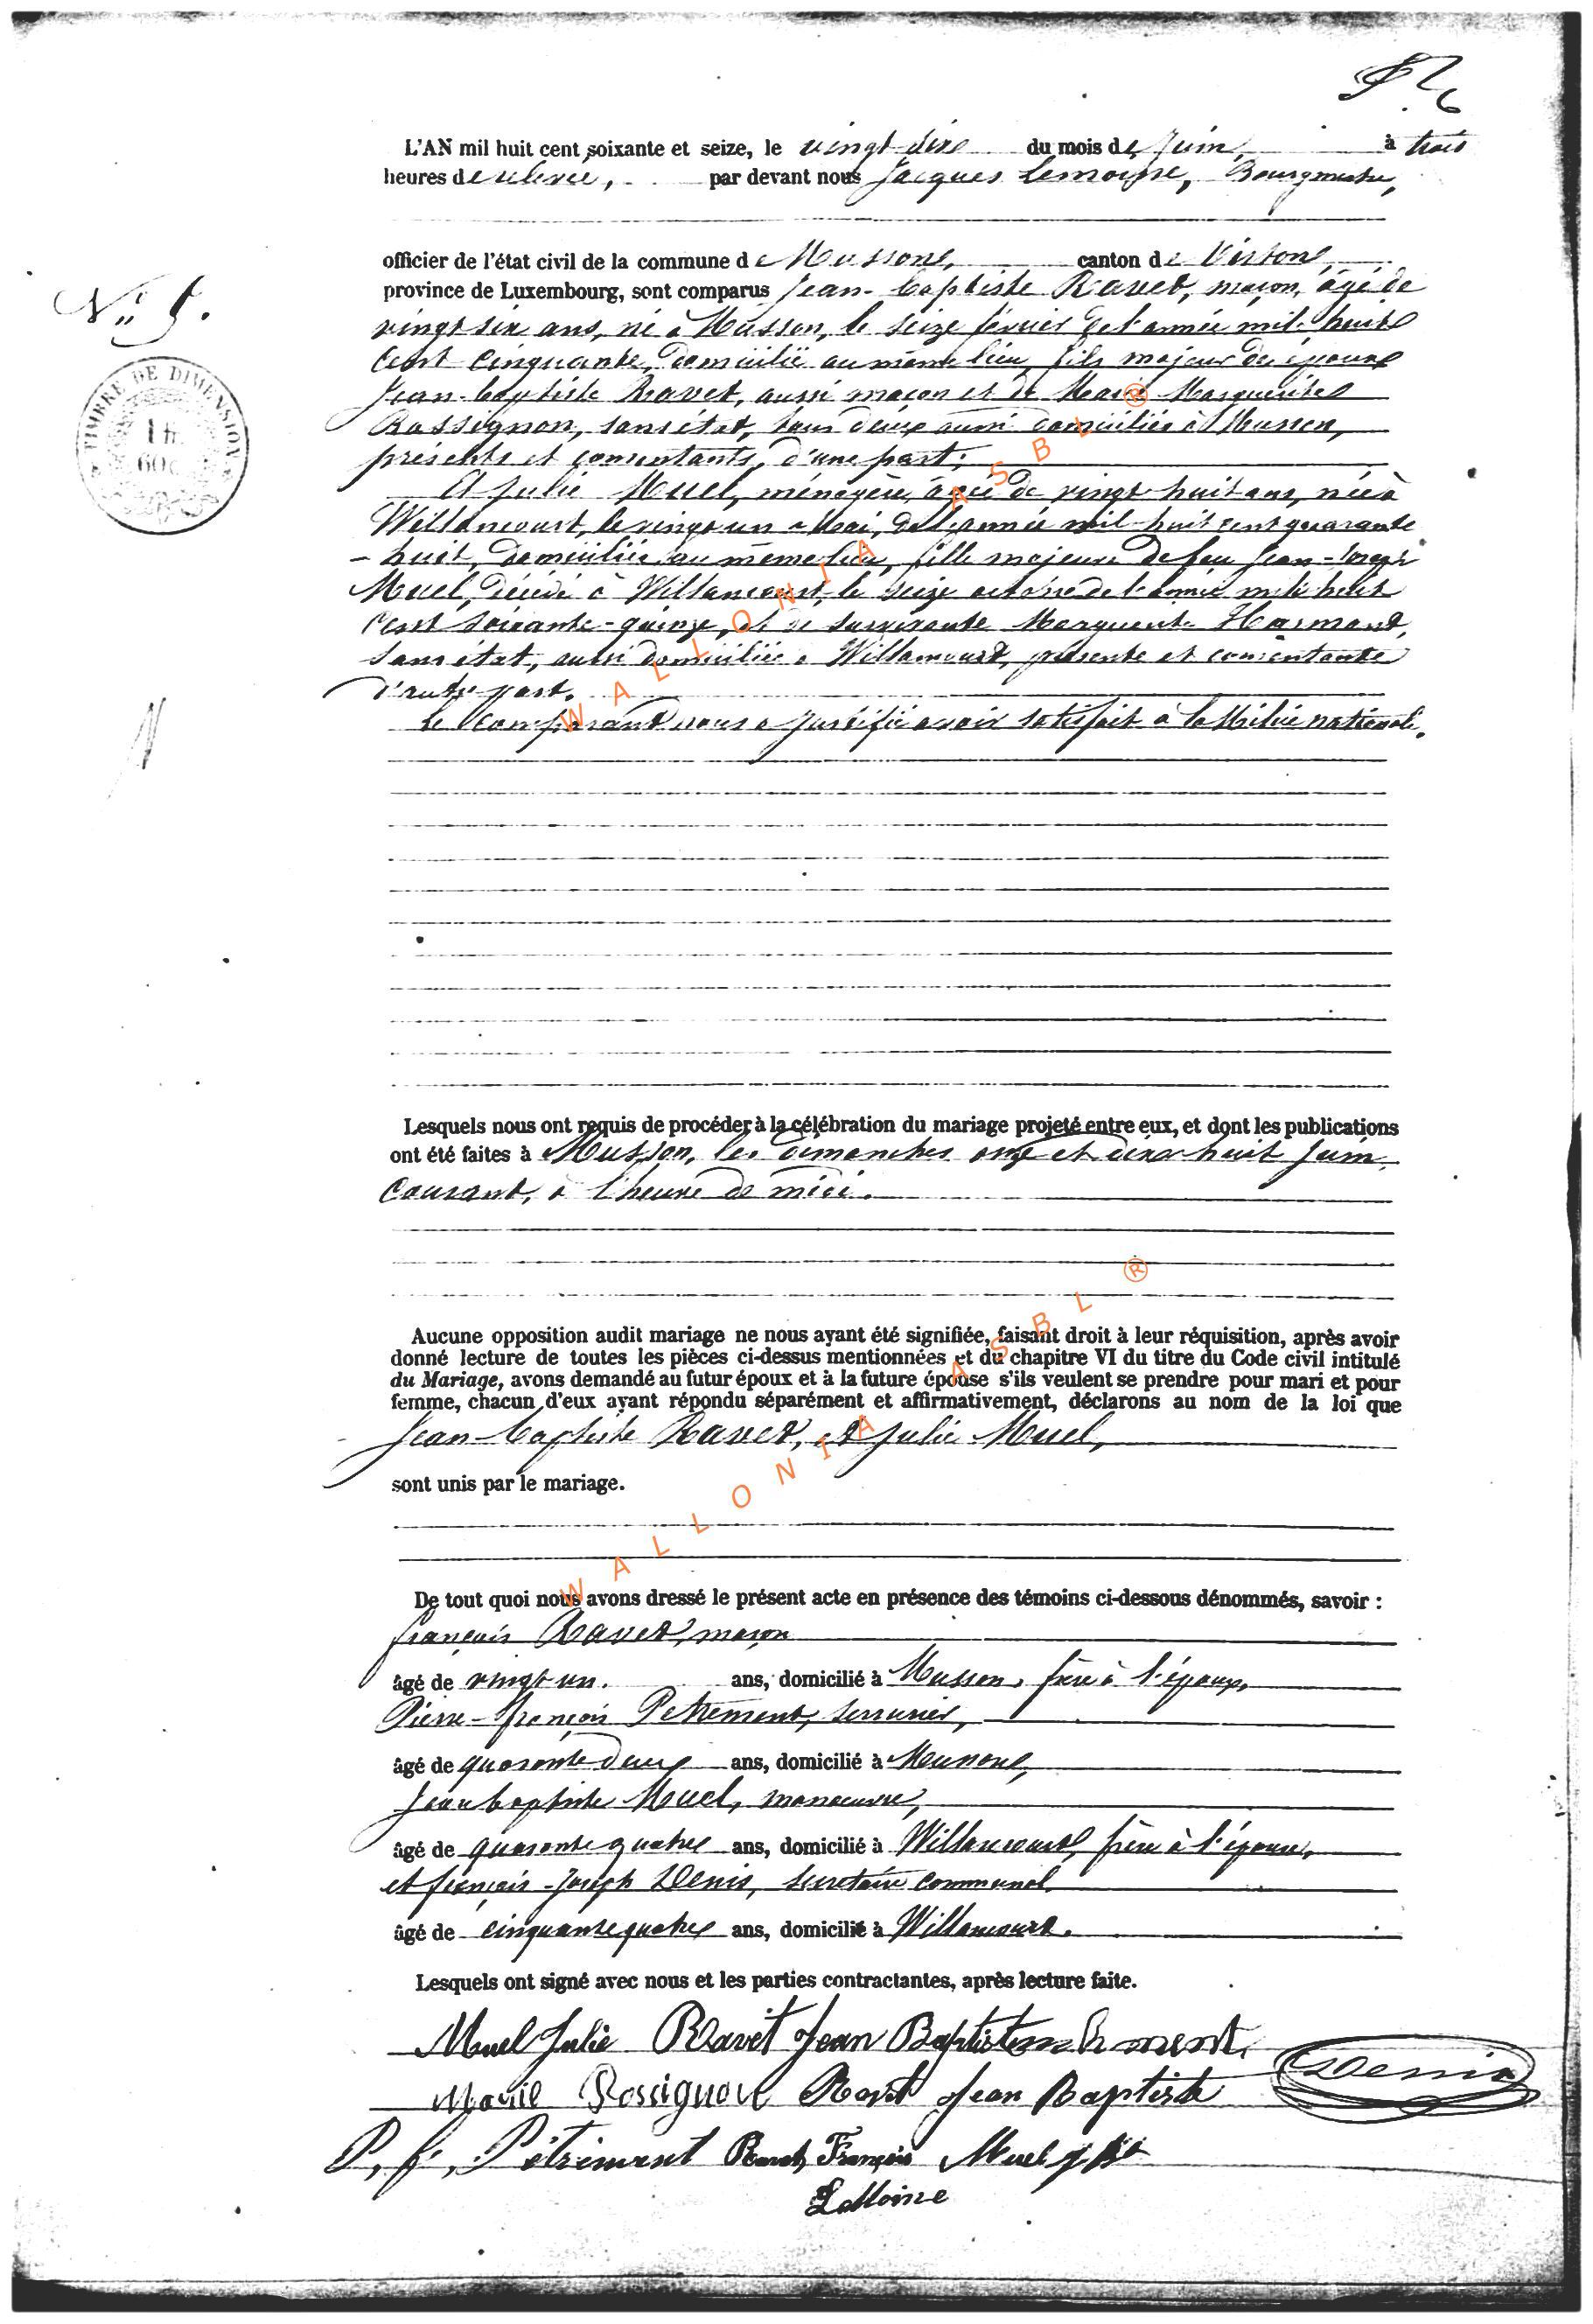 L'AN mil huit cent soixante et seize, le vingt-six du mois de Juin, à trois
heures de relevée, par devant nous Jacques Lemoine, Bourgmestre,
officier de l'état civil de la commune de Musson, canton de Virton,
province de Luxembourg, sont comparus Jean-Baptiste Ravet, maçon, âgé de
vingt six ans, né à Musson, le seize février de l'année mil-huit
cent cinquante, domicilié au même lieu, fils majeur des époux
Jean-Baptiste Ravet, aussi maçon et de Marie Marguerite
Rossignon, sans état, tous deux aussi domiciliés à Musson,
présents et consentants, d'une part;
Nº 5.
TIMBRE DE DIMENSION
1 fr.
60c
Et Julie Muel, ménagère, âgée de vingt huit ans, née à
Willancourt, le vingt un Mai, de l'année mil-huit cent quarante
-huit, domiciliée au même lieu, fille majeure de feu Jean-Joseph
Muel, décédé à Willancourt, le seize octobre de l'année mil-huit
cent soixante-quinze, et de survivante Marguerite Harmant,
sans état, aussi domiciliée à Willancourt, présente et consentante
d'autre part.
Le comparant nous a justifié avoir satisfait à la Milice nationale.
Lesquels nous ont requis de procéder à la célébration du mariage projeté entre eux, et dont les publications
ont été faites à Musson, les dimanches onze et dix-huit Juin
courant, à l'heure de midi.
Aucune opposition audit mariage ne nous ayant été signifiée, faisant droit à leur réquisition, après avoir
donné lecture de toutes les pièces ci-dessus mentionnées et du chapitre VI du titre du Code civil intitulé
du Mariage, avons demandé au futur époux et à la future épouse s'ils veulent se prendre pour mari et pour
femme, chacun d'eux ayant répondu séparément et affirmativement, déclarons au nom de la loi que
Jean-Baptiste Ravet, et Julie Muel,
sont unis par le mariage.
De tout quoi nous avons dressé le présent acte en présence des témoins ci-dessous dénommés, savoir :
François Ravet, maçon
âgé de vingt un. ans, domicilié à Musson, frère à l'époux,
Pierre-François Petrement, serrurier,
âgé de quarante deux ans, domicilié à Musson,
Jean baptiste Muel, manoeuvre,
âgé de quarante quatre ans, domicilié à Willancourt, frère à l'épouse,
et françois-Joseph Denis, secrétaire communal
âgé de cinquante quatre ans, domicilié à Willancourt.
Lesquels ont signé avec nous et les parties contractantes, après lecture faite.
Muel Julie Ravet Jean Baptiste
Denis
Marie Rossignon Ravet Jean Baptiste
P, f, Pétrement Ravet François Muel J Bte
LeMoine
WALLONIA ASBL ®
WALLONIA ASBL ®